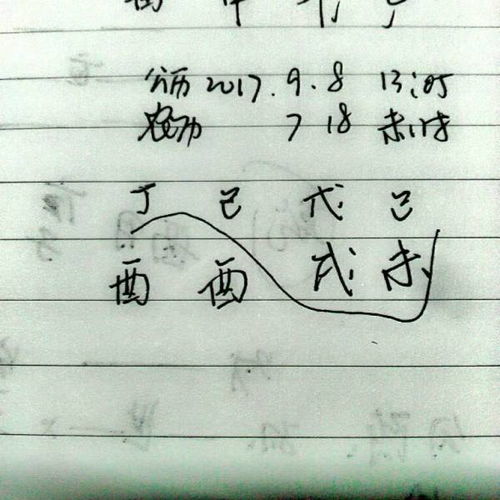 公历 2017.9.8 13:05
农历 7 18 未时
丁 己 戊 己
酉 酉 戌 未